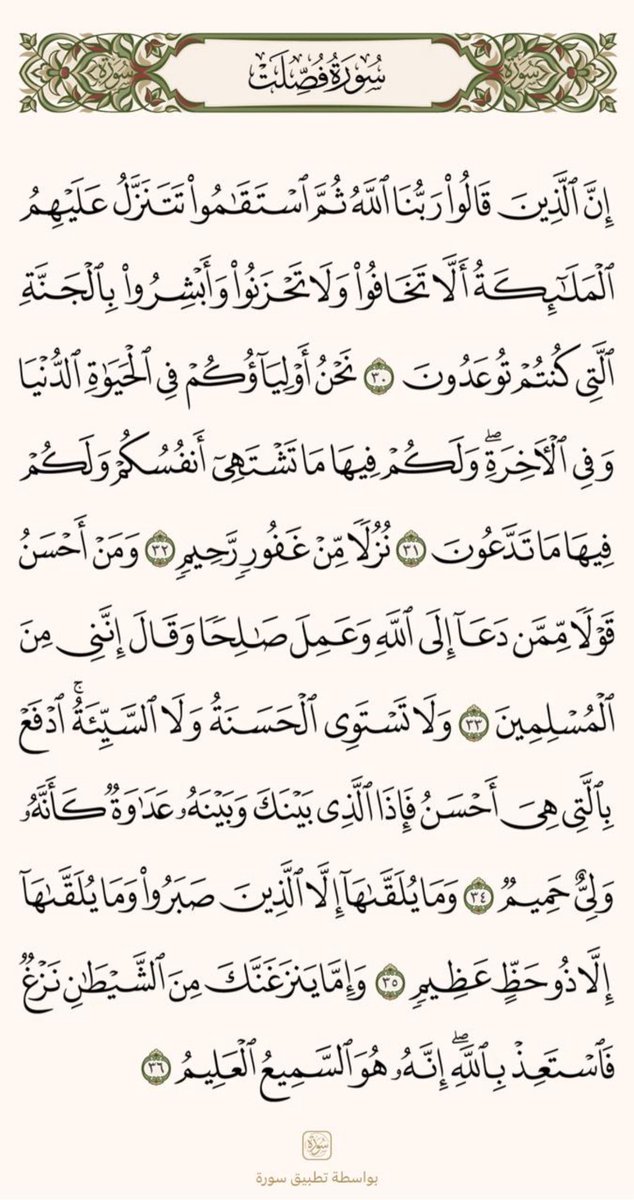 سُورَةُ فُصِّلَتۡ
سورة
سورة
إِنَّ ٱلَّذِينَ قَالُواْ رَبُّنَا ٱللَّهُ ثُمَّ ٱسۡتَقَٰمُواْ تَتَنَزَّلُ عَلَيۡهِمُ
ٱلۡمَلَٰٓئِكَةُ أَلَّا تَخَافُواْ وَلَا تَحۡزَنُواْ وَأَبۡشِرُواْ بِٱلۡجَنَّةِ
ٱلَّتِي كُنتُمۡ تُوعَدُونَ ٣٠ نَحۡنُ أَوۡلِيَآؤُكُمۡ فِي ٱلۡحَيَوٰةِ ٱلدُّنۡيَا
وَفِي ٱلۡأٓخِرَةِۖ وَلَكُمۡ فِيهَا مَا تَشۡتَهِيٓ أَنفُسُكُمۡ وَلَكُمۡ
فِيهَا مَا تَدَّعُونَ ٣١ نُزُلٗا مِّنۡ غَفُورٖ رَّحِيمٖ ٣٢ وَمَنۡ أَحۡسَنُ
قَوۡلٗا مِّمَّن دَعَآ إِلَى ٱللَّهِ وَعَمِلَ صَٰلِحٗا وَقَالَ إِنَّنِي مِنَ
ٱلۡمُسۡلِمِينَ ٣٣ وَلَا تَسۡتَوِي ٱلۡحَسَنَةُ وَلَا ٱلسَّيِّئَةُۚ ٱدۡفَعۡ
بِٱلَّتِي هِيَ أَحۡسَنُ فَإِذَا ٱلَّذِي بَيۡنَكَ وَبَيۡنَهُۥ عَدَٰوَةٞ كَأَنَّهُۥ
وَلِيٌّ حَمِيمٞ ٣٤ وَمَا يُلَقَّىٰهَآ إِلَّا ٱلَّذِينَ صَبَرُواْ وَمَا يُلَقَّىٰهَآ
إِلَّا ذُو حَظٍّ عَظِيمٖ ٣٥ وَإِمَّا يَنزَغَنَّكَ مِنَ ٱلشَّيۡطَٰنِ نَزۡغٞ
فَٱسۡتَعِذۡ بِٱللَّهِۖ إِنَّهُۥ هُوَ ٱلسَّمِيعُ ٱلۡعَلِيمُ ٣٦
سورة
بواسطة تطبيق سورة